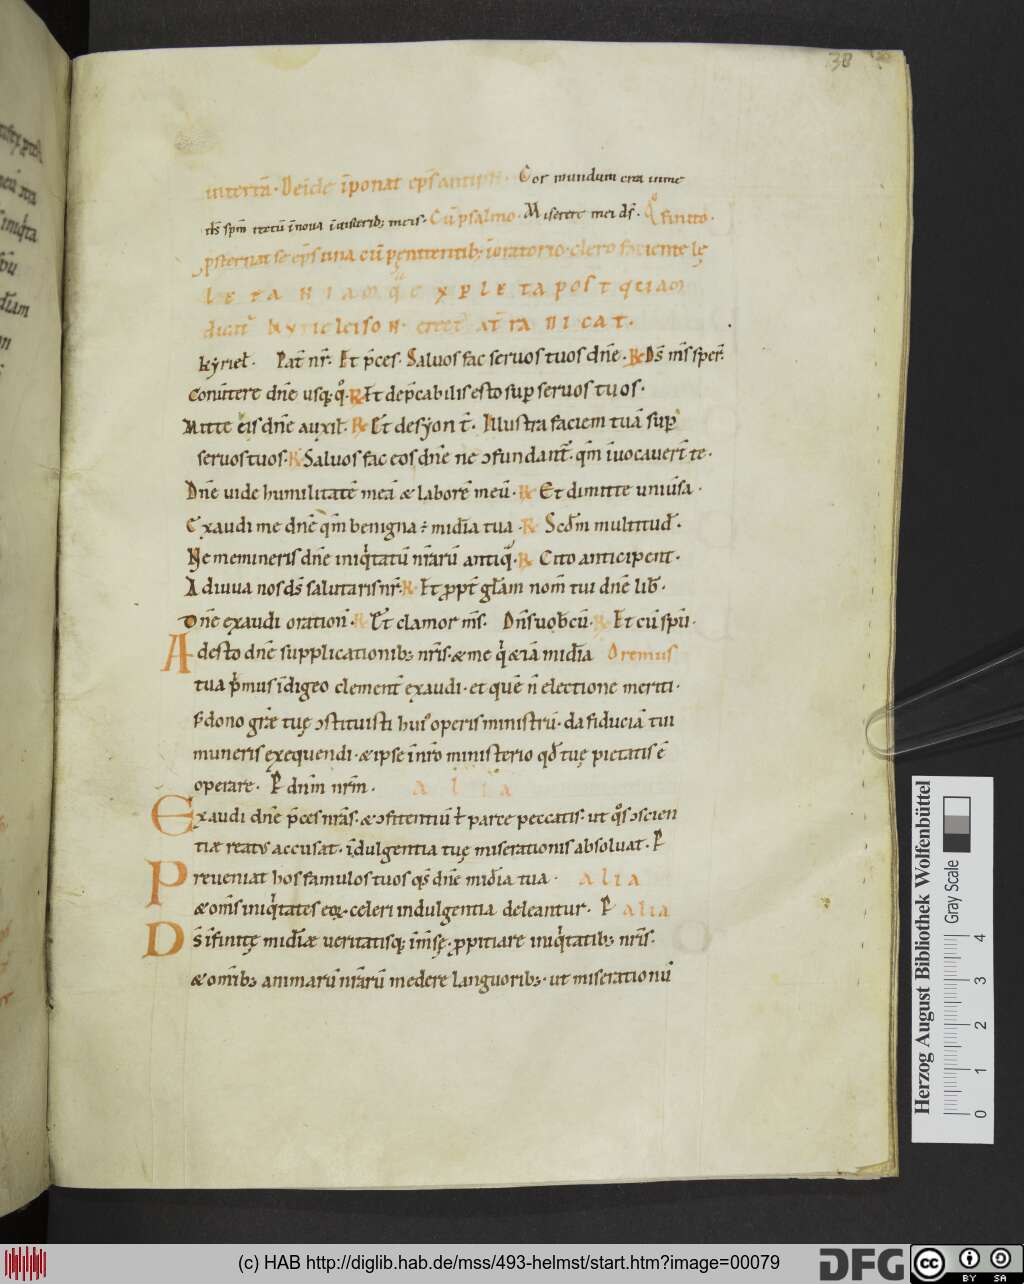 38
uiterta. Deide īponat ep̄s antiph. Cor mundum crea inme
ds̄ spm̄ rectū īnoua īuisceribꝫ meis. Cū psalmo. Miserere mei ds̄. Qͦ finito.
ꝓsternat se ep̄s una cū pęnitentibꝫ īoratorio. clero faciente lę
letaniam q̄ expleta postquam
dicat̄ kyrieleison
kyriel̄. Pat̄ nr̄. Et p̄ces. Saluos fac seruos tuos dn̄e. R Ds̄ m̄s sper̄.
Conūtere dn̄e usqꝫ qͦ. R Et dep̄cabilis esto suꝑ seruos tuos.
Mitte eis dn̄e auxil̄. R Et̄ desyon t̄. Illustra faciem tuā suꝑ
seruos tuos. R Saluos fac eos dn̄e ne ↄfundant̄. qm̄ īuocauert̄ te.
Dn̄e uide humilitatē meā & laborē meū. R Et dimitte uniūsa.
Exaudi me dn̄e qm̄ benigna ÷ mid̄ia tua. R Scd̄m multitud̄.
Ne memineris dn̄e iniqͥtatū nr̄arū antiq̄. R Cito anticipent.
Adiuua nos ds̄ salutaris nr̄. R Et ꝓpt̄ gl̄am nom̄ tui dn̄e lib̄.
Dn̄e exaudi oration̄. R Et̄ clamor m̄s. Dn̄s uob̄cū. R Et cū spū.
Adesto dn̄e supplicationibꝫ nr̄is. & me qͥ &iā mid̄ia Oremus
tua pͥmus īdigeo clement̄ exaudi. et quē n̄ electione meriti.
s̄ dono gr̄æ tuę ↄstituisti huiꝰ operis ministrū. da fiduciā tui
muneris exequendi. & ipse īnr̄o ministerio qd̄ tuę pietatis ē
operare. P dnm̄ nr̄m. alia
Exaudi dn̄e p̄ces nr̄as. & ↄfitentiū t̄ parce peccatis. ut qͦs ↄscien
tiæ reatus accusat. īdulgentia tuę miserationis absoluat. P
Preueniat hos famulos tuos qs̄ dn̄e mid̄ia tua. alia
& om̄s iniqͥtates eoꝝ celeri indulgentia deleantur. P alia
Ds̄ īfinitę mid̄iæ ueritatisqꝫ īm̄sę. ꝓpitiare iniqͥtatibꝫ nr̄is.
& om̄ibꝫ animarū nr̄arū medere languoribꝫ. ut miserationū
Herzog August Bibliothek Wolfenbüttel
Gray Scale
0 1 2 3 4
(c) HAB http://diglib.hab.de/mss/493-helmst/start.htm?image=00079
DFG
cc BY SA